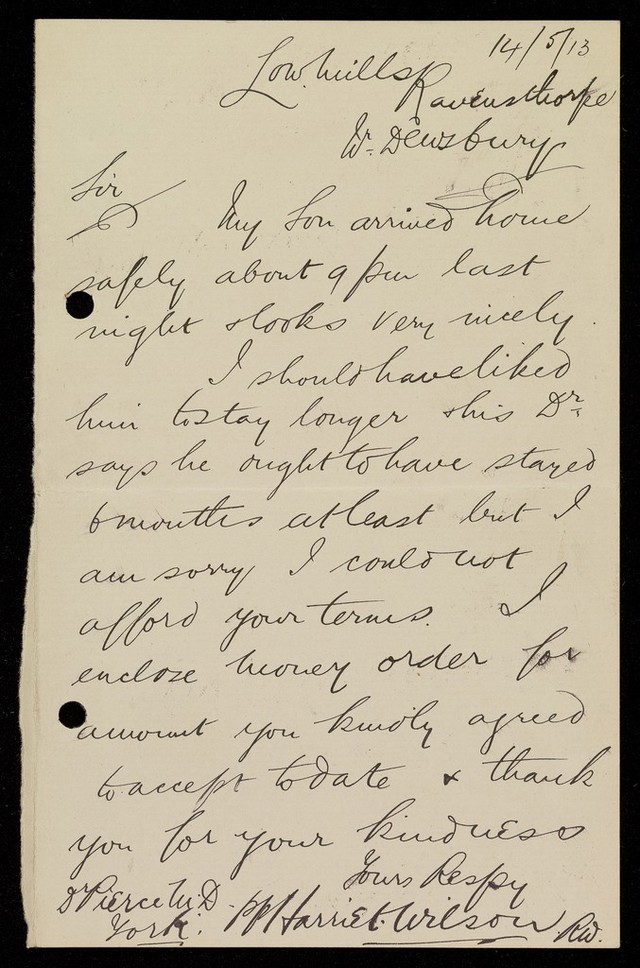 14/5/13
Low Mills
Ravensthorpe
Nr. Dewsbury
Sir
My Son arrived home
safely about 9 pm last
night & looks very nicely.
I should have liked
him to stay longer & his Dr.
says he ought to have stayed
6 months at least but I
am sorry I could not
afford your terms. I
enclose money order for
amount you kindly agreed
to accept to date & thank
you for your kindness
Yours Respy
Dr Pierce M.D.
York. pp Harriet Wilson RW.